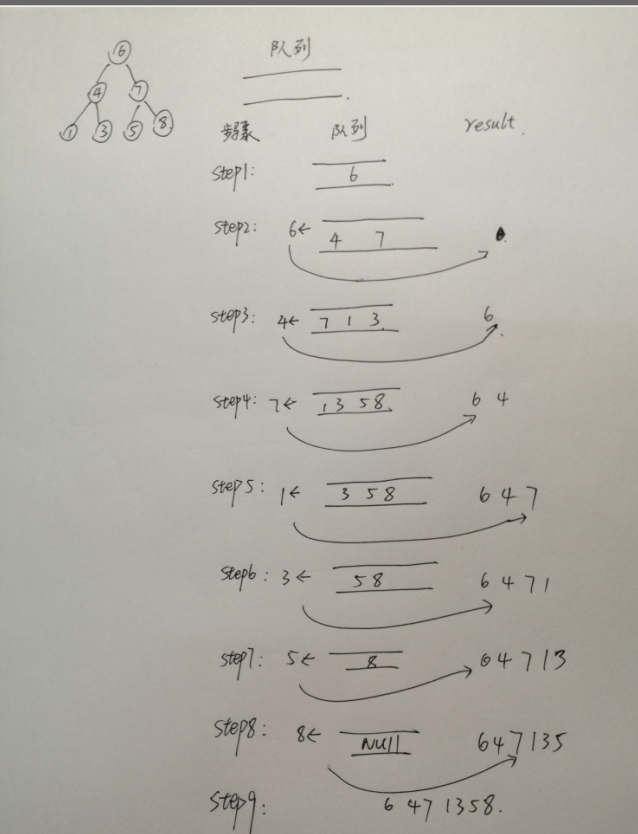 队列
6
4 7
1 3 5 8
步骤 队列 result.
step1: 6
step2: 6← 4 7
step3: 4← 7 1 3 6
step4: 7← 1 3 5 8 6 4
step5: 1← 3 5 8 6 4 7
step6: 3← 5 8 6 4 7 1
step7: 5← 8 6 4 7 1 3
step8: 8← NUll 6 4 7 1 3 5
step9: 6 4 7 1 3 5 8.